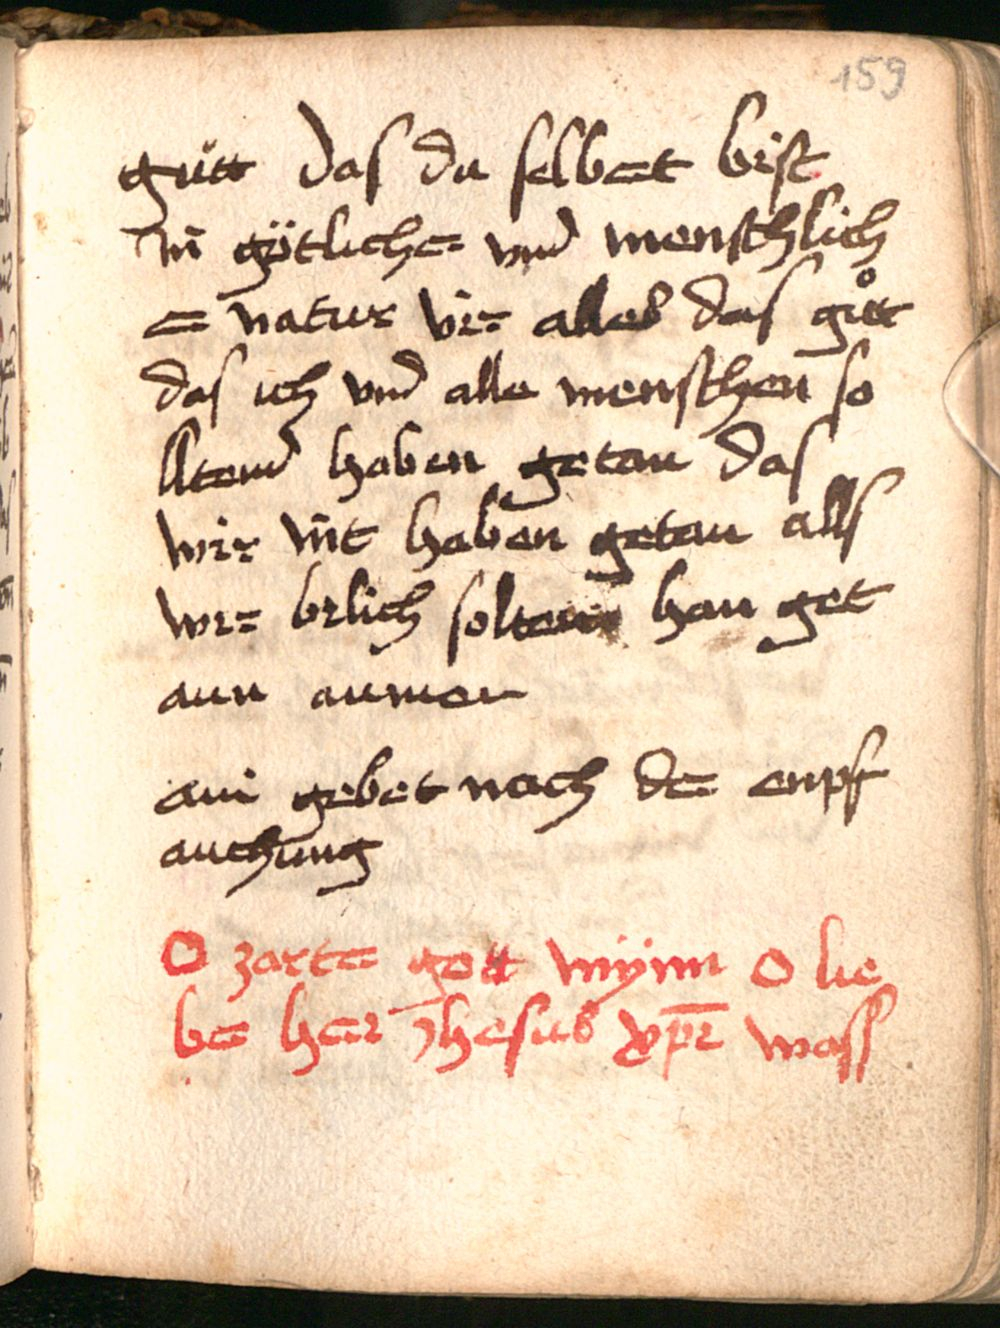 159
guͦtt das du selbert brist
in götlicher vnd menschlich
er natur vir alles das guͦtt
das ich vnd alle menschen so
lltend haben getan das
wir nit haben getan alls
wir brlich soltend han get
aun aumen
ain gebet nach der enpf
auchung
O zarter gott mÿnn O lie
ber herr Jhesus xp̄r wass